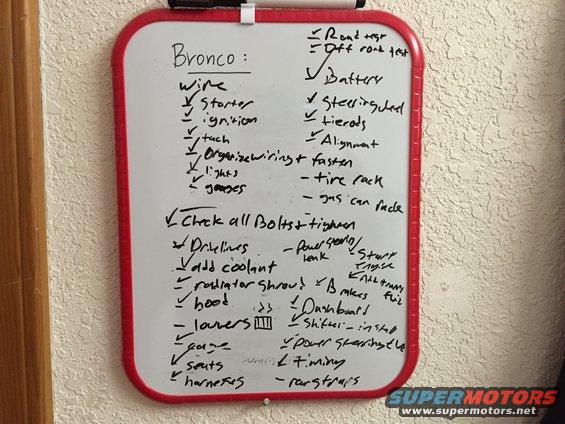 Bronco:
wire
✓ Starter
✓ ignition
✓ tach
✓ Organize wiring + fasten
✓ lights
✓ gauges
✓ Road test
✓ Off road test
✓ Battery
✓ Steering wheel
✓ tierods
✓ Alignment
- tire rack
- gas can rack
✓ Check all Bolts + tighten
✓ Drivelines
✓ add coolant
✓ radiator shroud
✓ hood
- louvers
✓ seats
✓ harnesses
- Power steering
leak
✓ Start
engine
✓ Add trans
fluid
✓ Brakes
✓ Dashboard
✓ Shifter - install
✓ Power steering
✓ timing
- rear straps
SUPERMOTORS
www.supermotors.net